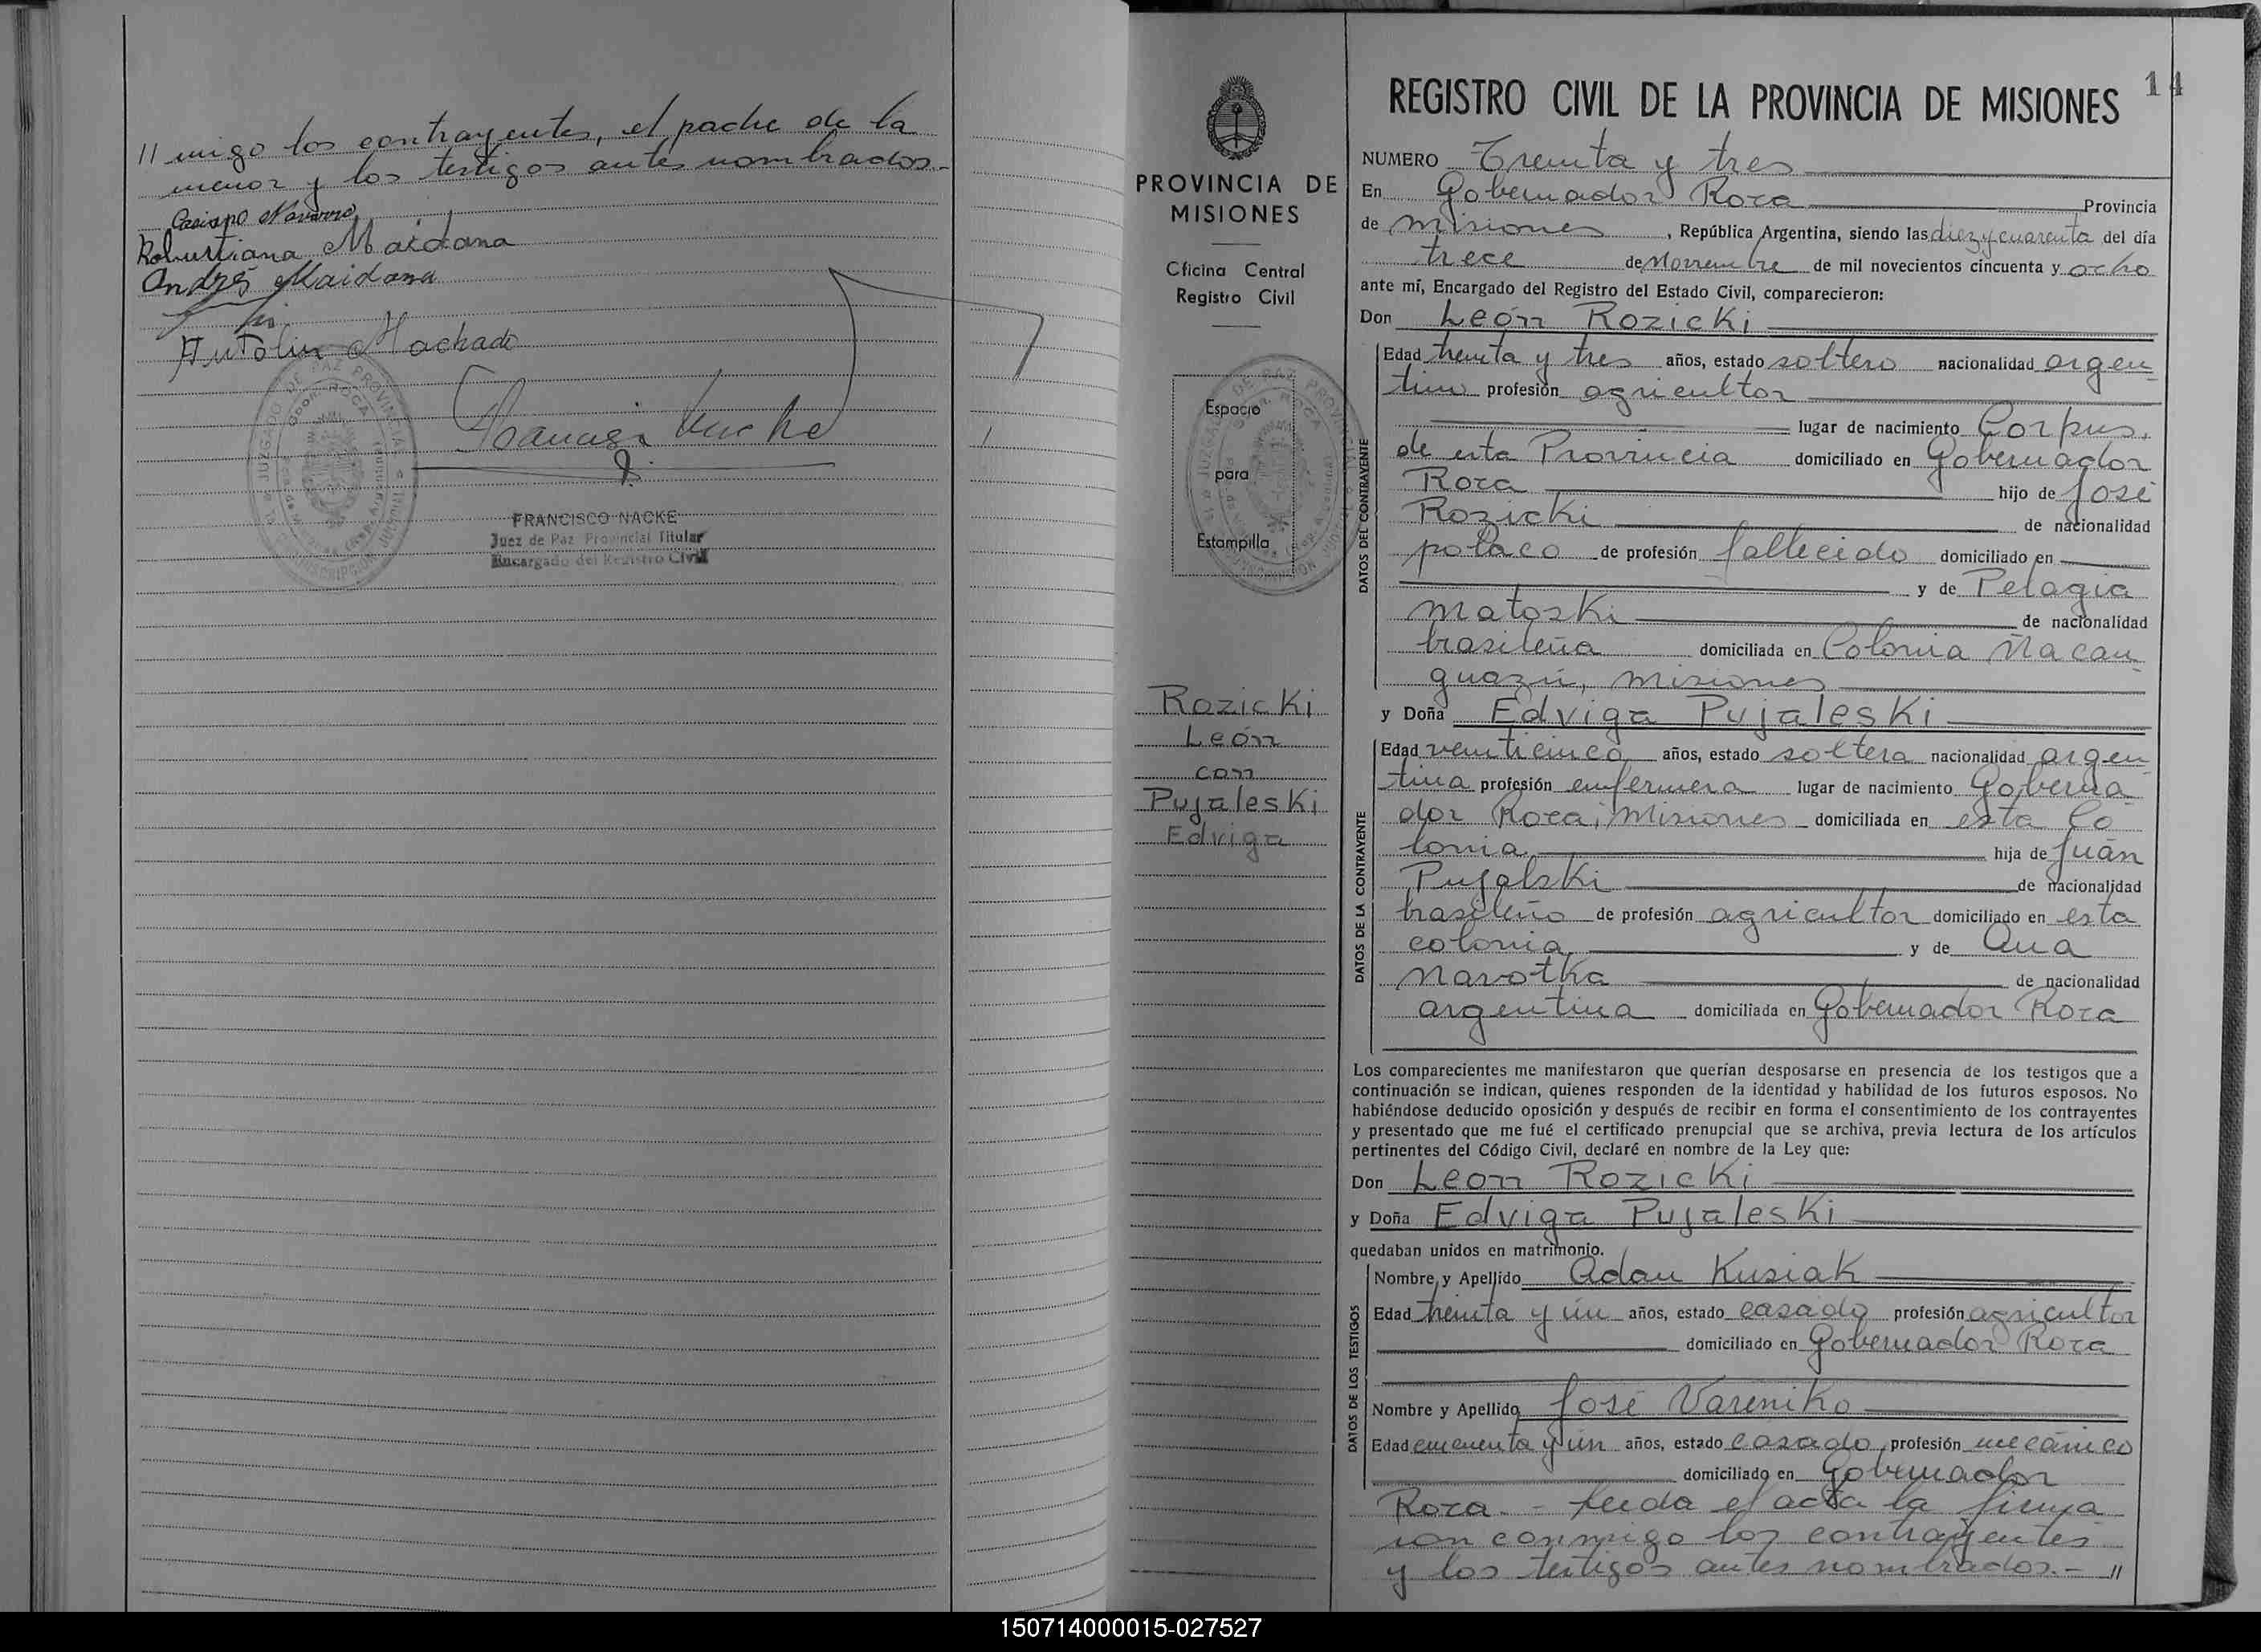 // migo los contrayentes, el padre de la
menor y los testigos antes nombrados.-
Casiano Navarro
Robustiana Maidana
Andrés Maidana
Antolin Machado
FRANCISCO NACKE
Juez de Paz Provincial Titular
Encargado del Registro Civil
PROVINCIA DE
MISIONES
Oficina Central
Registro Civil
Espacio
para
Estampilla
Rozicki
León
con
Pujaleski
Edviga
14
REGISTRO CIVIL DE LA PROVINCIA DE MISIONES
NUMERO Treinta y tres
En Gobernador Roca Provincia
de Misiones, República Argentina, siendo las diez y cuarenta del día
trece de Noviembre de mil novecientos cincuenta y ocho
ante mí, Encargado del Registro del Estado Civil, comparecieron:
Don León Rozicki
DATOS DEL CONTRAYENTE
Edad treinta y tres años, estado soltero nacionalidad argen-
tino profesión agricultor
lugar de nacimiento Corpus,
de esta Provincia domiciliado en Gobernador
Roca hijo de José
Rozicki de nacionalidad
polaco de profesión fallecido domiciliado en
y de Pelagia
Matoski de nacionalidad
brasileña domiciliada en Colonia Ñacan-
guazú, Misiones
y Doña Edviga Pujaleski
DATOS DE LA CONTRAYENTE
Edad veinticinco años, estado soltera nacionalidad argen-
tina profesión enfermera lugar de nacimiento Goberna-
dor Roca, Misiones domiciliada en esta Co-
lonia hija de Juan
Pujalski de nacionalidad
brasileño de profesión agricultor domiciliado en esta
colonia y de Ana
Navotka de nacionalidad
argentina domiciliada en Gobernador Roca
Los comparecientes me manifestaron que querían desposarse en presencia de los testigos que a
continuación se indican, quienes responden de la identidad y habilidad de los futuros esposos. No
habiéndose deducido oposición y después de recibir en forma el consentimiento de los contrayentes
y presentado que me fué el certificado prenupcial que se archiva, previa lectura de los artículos
pertinentes del Código Civil, declaré en nombre de la Ley que:
Don Leon Rozicki
y Doña Edviga Pujaleski
quedaban unidos en matrimonio.
DATOS DE LOS TESTIGOS
Nombre y Apellido Adan Kusiak
Edad treinta y ún años, estado casado profesión agricultor
domiciliado en Gobernador Roca
Nombre y Apellido José Vareniko
Edad cincuenta y ún años, estado casado profesión mecánico
domiciliado en Gobernador
Roca. - Leída el acta la firma
ron conmigo los contrayentes
y los testigos antes nombrados.- //
150714000015-027527